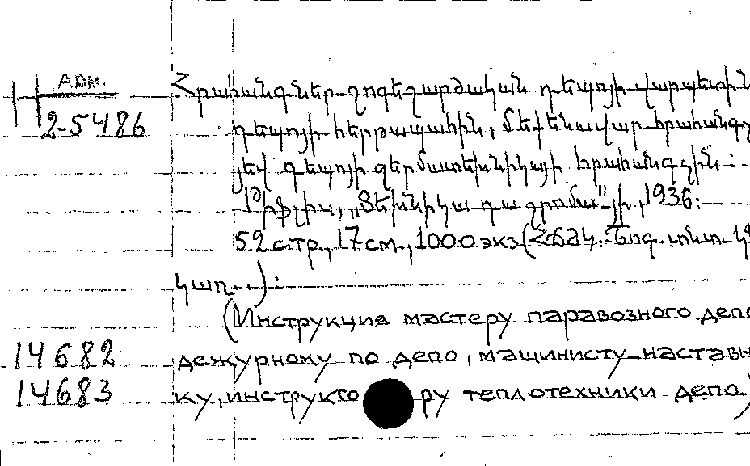 АРМ.
2-5486
Հրահանգներ շոգեքարշական դեպոյի վարպետին
դեպոյի հերթապահին, մեքենավար հրահանգ
յեվ դեպոյի ջերմատեխնիկայի հրահանգչին:
Թիֆլիս, „Տեխնիկա դա շրոմա"-յի, 1936:
52 стр., 17 см., 1000 экз (
կառ.):
(Инструкция мастеру паравозного депо
14682 дежурному по депо, машинисту-настав
14683 ку, инструктору теплотехники депо)